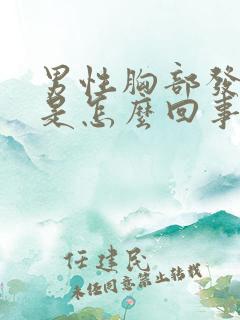 男性胸部發
是怎麼回事
任建民
未經同意禁止轉載